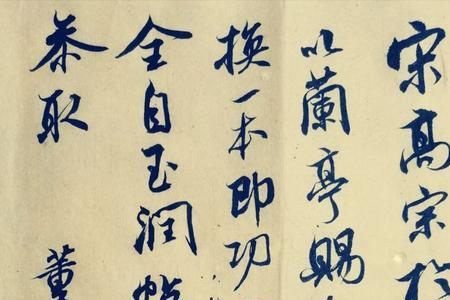 宋高宗於
以蘭亭賜
換一本即功
全自玉潤帖
叅取 董